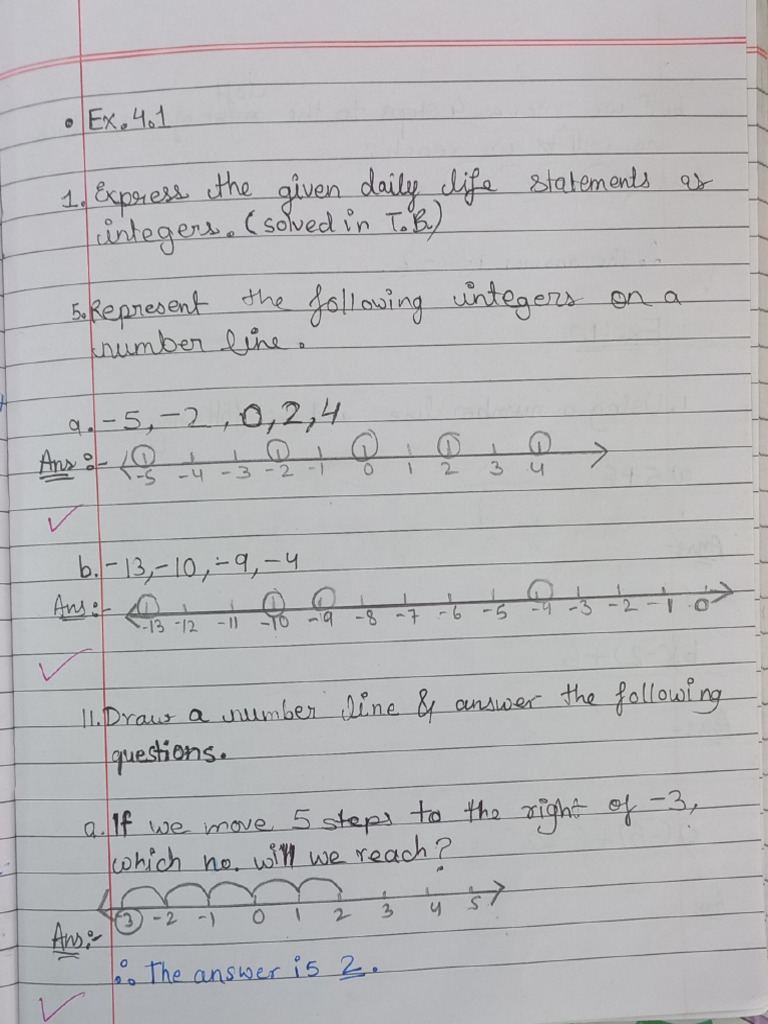 • Ex. 4.1
1. Express the given daily life statements as
integers. (solved in T.B.)
5. Represent the following integers on a
number line.
a. -5, -2, 0, 2, 4
Ans:-
-5 -4 -3 -2 -1 0 1 2 3 4
b. -13, -10, -9, -4
Ans:-
-13 -12 -11 -10 -9 -8 -7 -6 -5 -4 -3 -2 -1 0
11. Draw a number line & answer the following
questions.
a. If we move 5 steps to the right of -3,
which no. will we reach?
-3 -2 -1 0 1 2 3 4 5
Ans:-
∴ The answer is 2.